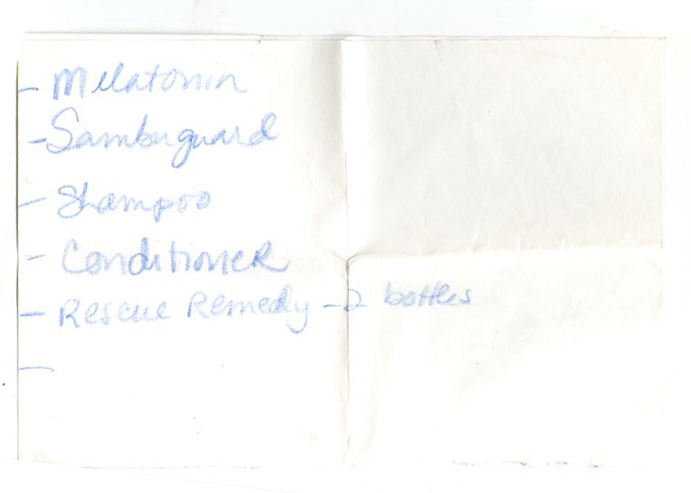 - Melatonin
- Sambuguard
- Shampoo
- Conditioner
- Rescue Remedy - 2 bottles
-